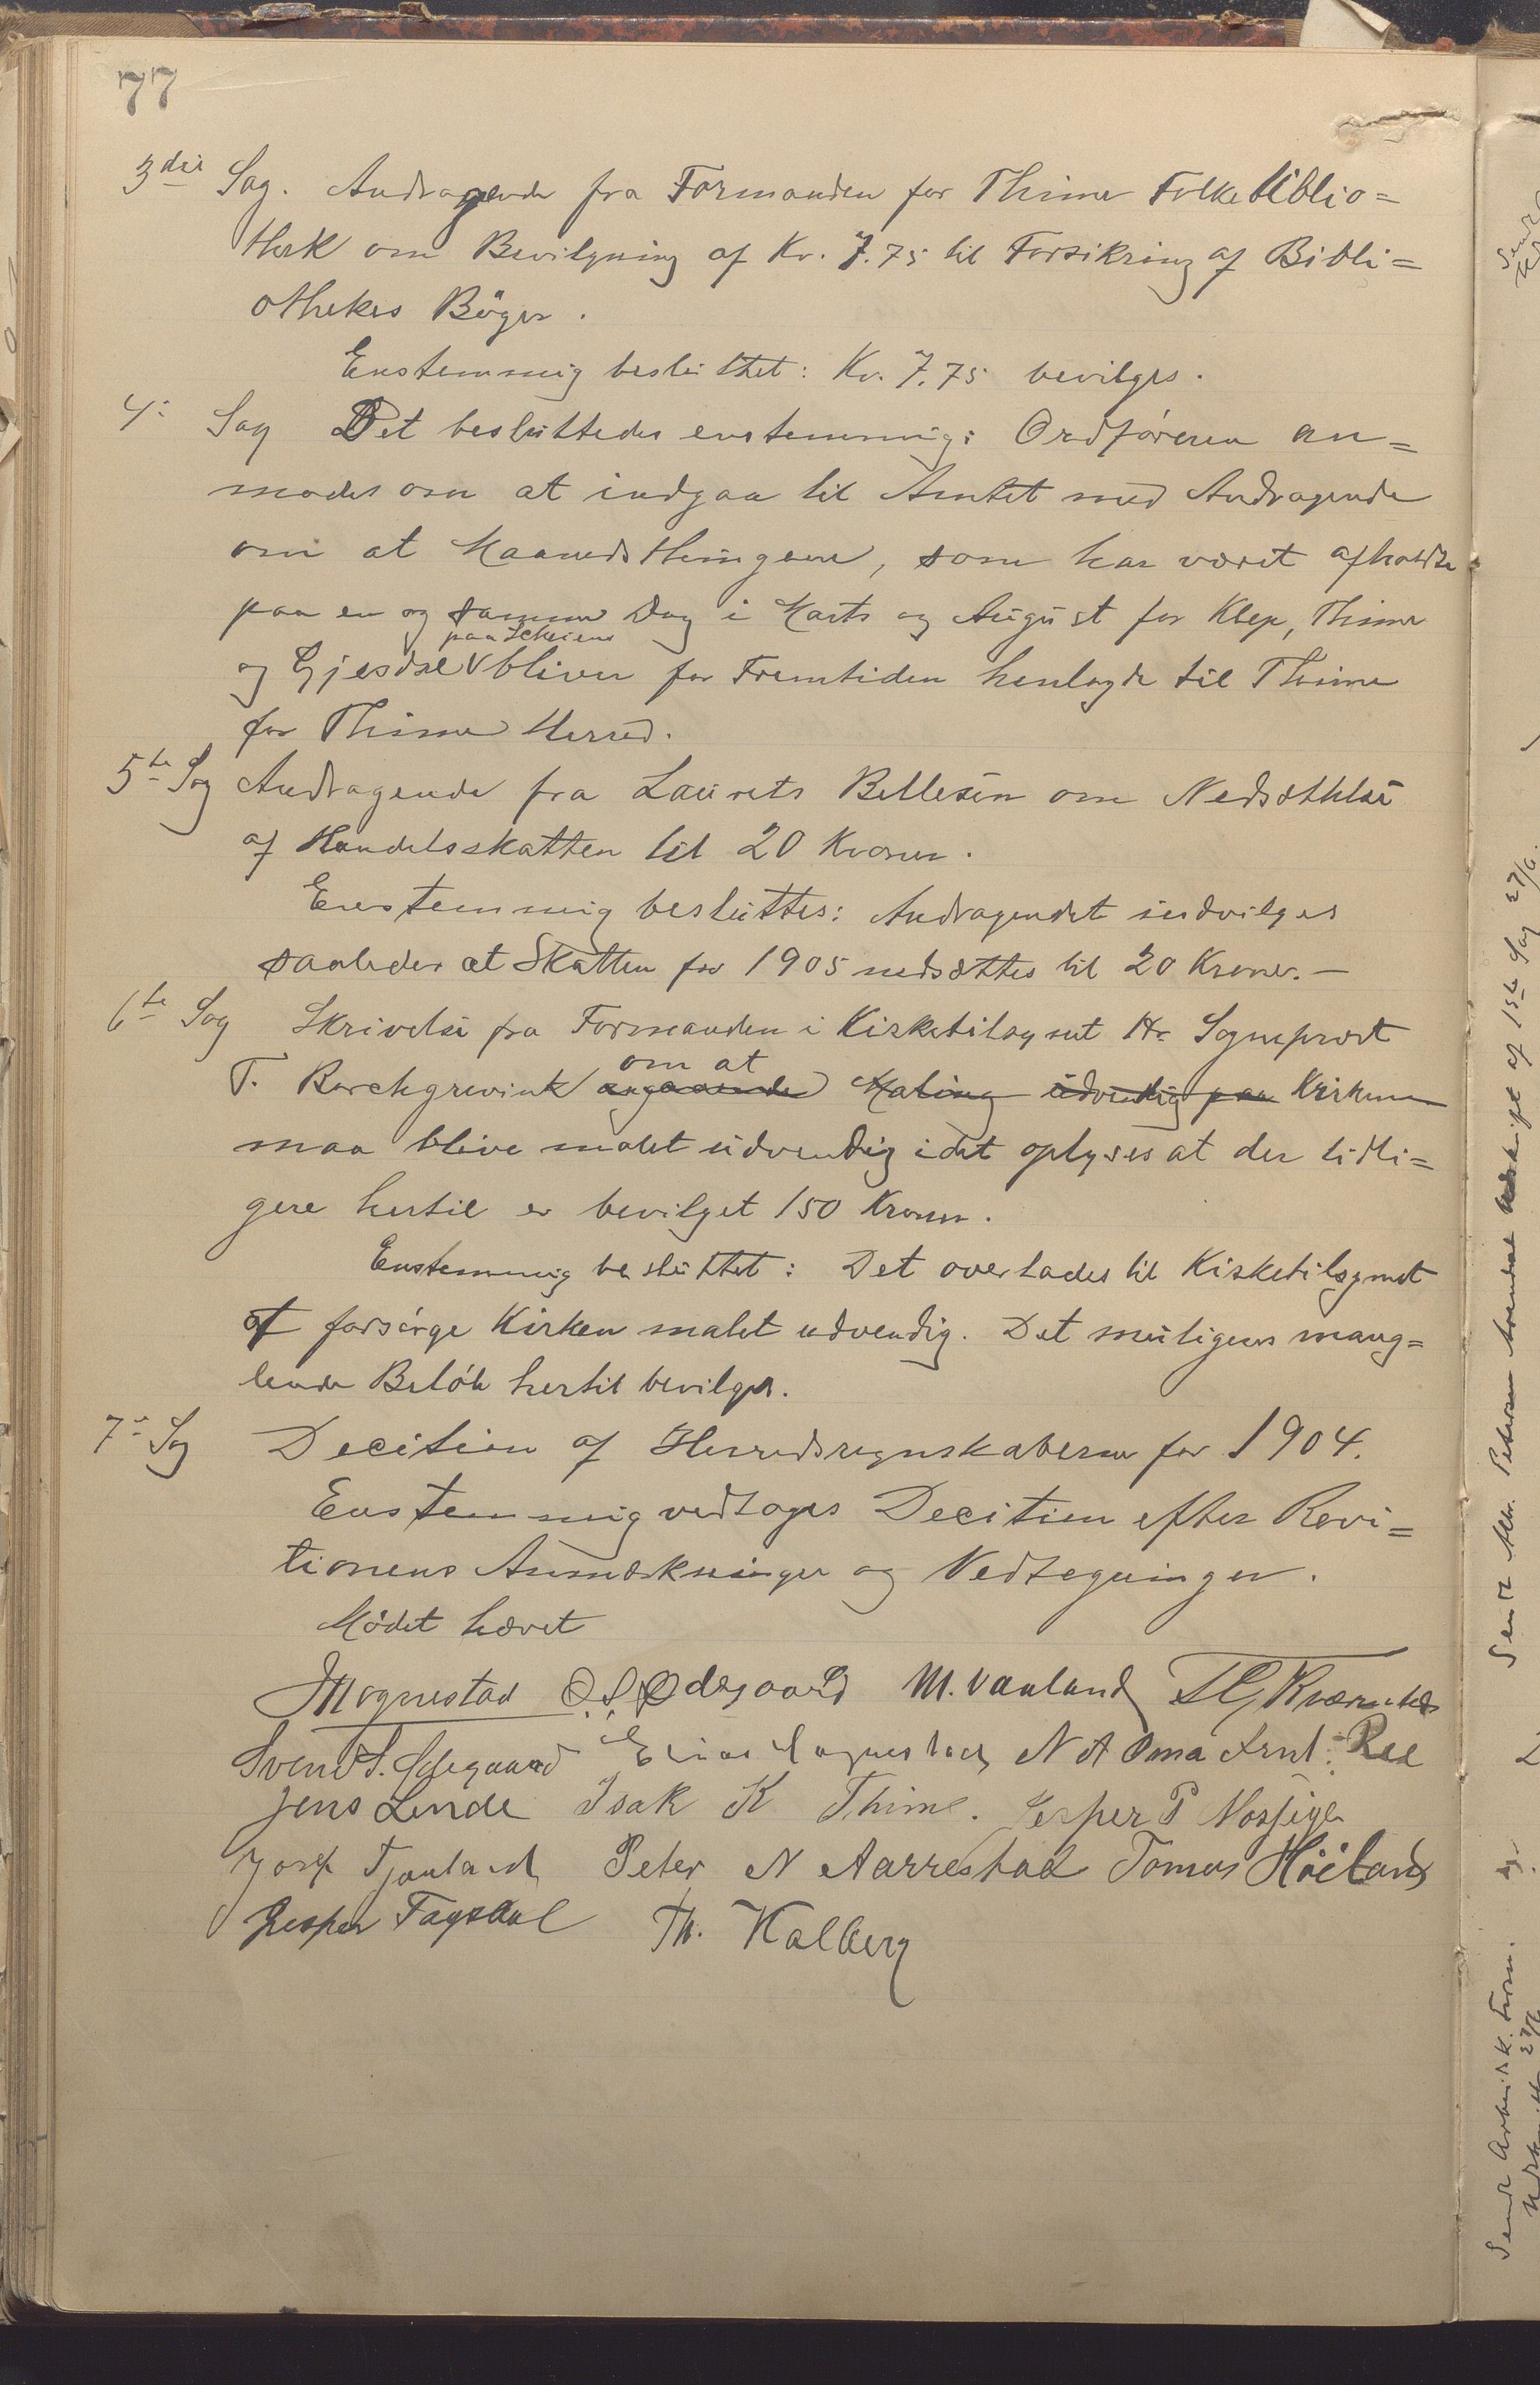 77
3die Sag. Andragende fra Formanden for Thime Folkebiblio=
thek om Bevilgning af Kr. 7.75 til Forsikring af Bibli=
othekes Böger.
Enstemmig besluttet: Kr. 7.75 bevilges.
4: Sag Det besluttedes enstemmig: Ordføreren an=
modes om at indgaa til Amtet med Andragende
om at Maanedsthingene, som har været afholdte
paa en og samme Dag i Marts og August for Klep, Thime
paa Scheiene
og Gjesdal V bliver for Fremtiden henlagde til Thime
for Thime Herred.
5te Sag Andragende fra Laurets Bellesen om Nedsættelse
af Handelsskatten til 20 Kroner.
Enstemmig besluttes: Andragendet indvilges
saaledes at Skatten for 1905 nedsættes til 20 Kroner. —
6te Sag Skrivelse fra Formanden i Kirketilsynet Hr. Sogneprest
om at
T. Borchgrevink angaaende Maling udvendig paa Kirken
maa blive malet udvendig idet oplyses at der tidli=
gere hertil er bevilget 150 Kroner.
Enstemmig besluttet: Det overlades til Kirketilsynet
at forsørge Kirken malet udvendig. Det muligens mang=
lende Beløb hertil bevilges.
7de Sag Decition af Herredsregnskaberne for 1904.
Enstemmig vedtoges Decition efter Revi=
tionens Anmærkninger og Vedtegninger.
Mødet hævet
J Mognestad O. S. Ødegaard M. Vauland T G Kværnelda
Svend S. Ødegaard Elias Mognestad N A Oma Arnt. Ree
Jens Linde Isak K Thime. Jesper P Nossige
Josef Tjaaland Peter N Aarrestad Tomas Höiland
Jesper Fagsdal Th. Kalberg
Sendt Adv. Petersen Arendal Udskrift af 1ste Sag 27/6.
Sendt Arbeidsk. Form.
27/6